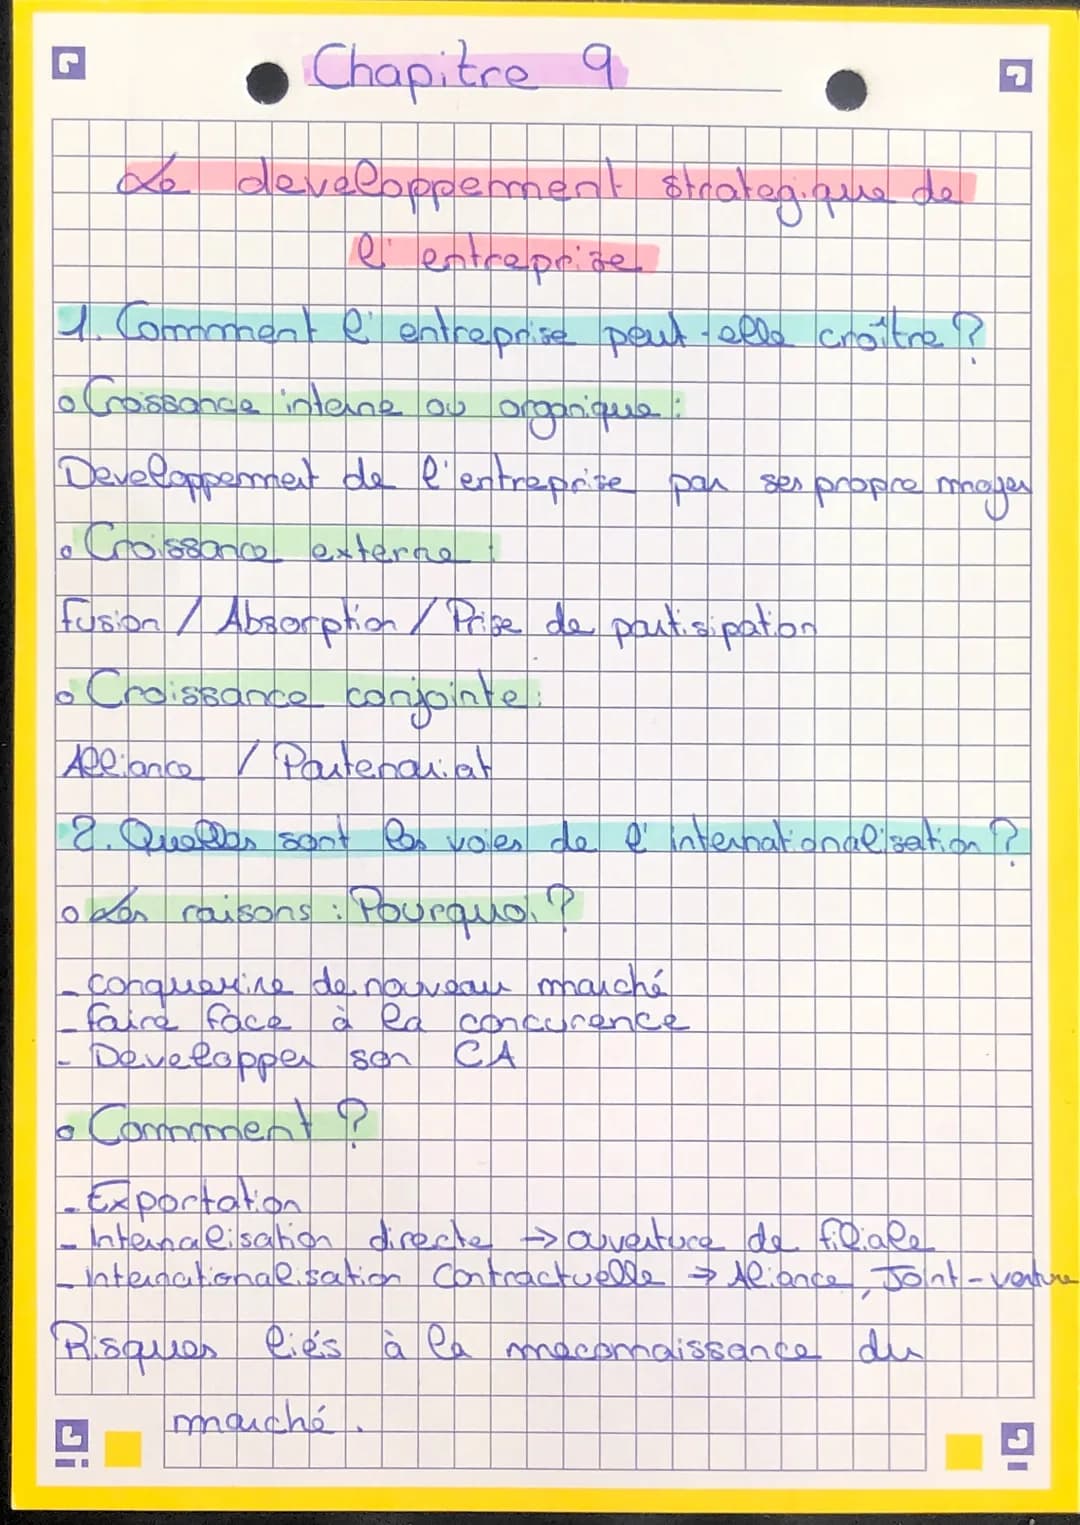 Chapitre 9
Le developpement strategique de
l'entreprise
1. Comment l'entreprise peut-elle croître ?
o Croissance interne ou organique :
Developpement de l'entreprise par ses propre moyen
o Croissance externe :
Fusion / Absorption / Prise de partisipation
o Croissance conjointe :
Alliance / Partenariat
2. Quelles sont les voies de l'internationalisation ?
o Les raisons : Pourquoi ?
- conquerire de nouveau marché
- faire face à la concurence
- Developper son CA
o Comment ?
- Exportation
- Internalisation directe → ouverture de filiale
- internationalisation Contractuelle → Aliance, Joint-venture
Risques liés à la meconnaissance du
marché.